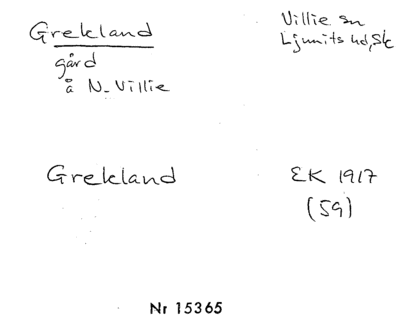 Grekland
gård
å N. Villie
Villie sn
Ljunits hd, Sk
Grekland
EK 1917
(59)
Nr 15365